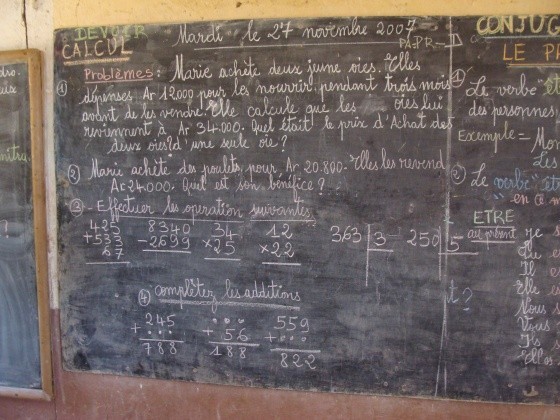 DEVOIR
CALCUL
Mardi le 27 novembre 2007
PA-PR-D
Problèmes : Marie achète deux jeune oies. Elles
① dépenses Ar 12000 pour les nourrir pendant trois mois
avant de les vendre. Elle calcule que les oies lui
reviennent à Ar 34.000. Quel était le prix d'Achat des
deux oies? d'une seule oie ?
② Marie achète des poulets pour Ar 20.800. Elles les revend
Ar 24000. Quel est son bénéfice ?
③ - Effectuer les operation suivantes
425 8340 34 12 363 3 - 250 5
+ 533 - 2699 × 25 × 22
67
④ complétez les additions
245 ... ... 559
+ ... + 56 + ...
788 188 822
CONJUG
LE PR
① Le verbe "êt
des personnes,
Exemple = Mon
Les
② Le verbe "êt
" en ce m
ETRE
au présent Je s
Tu e
Il
Elle es
Nous s
Vous
Ils s
Elles
t ?
dro.
eux
nitra.
?